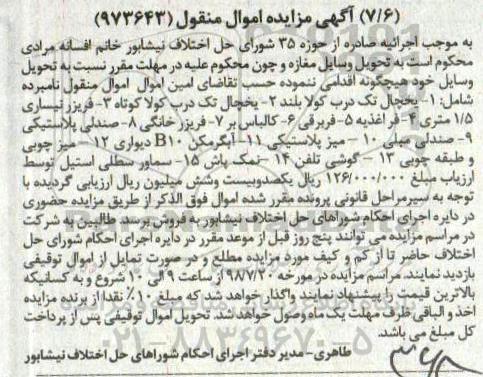 (۷/۶) آگهی مزایده اموال منقول (۹۷۳۶۴۳)
به موجب اجرائیه صادره از حوزه ۳۵ شورای حل اختلاف نیشابور خانم افسانه مرادی
محکوم است به تحویل وسایل مغازه و چون محکوم علیه در مهلت مقرر نسبت به تحویل
وسایل خود هیچگونه اقدامی ننموده حسب تقاضای امین اموال اموال منقول نامبرده
شامل: ۱- یخچال تک درب کولا بلند ۲- یخچال تک درب کولا کوتاه ۳- فریزر نیساری
۱/۵ متری ۴- فر اغذیه ۵- فربرقی ۶- کالباس بر ۷- فریزر خانگی ۸- صندلی پلاستیکی
۹- صندلی مبلی ۱۰ - میز پلاستیکی ۱۱- آبگرمکن B۱۰ دیواری ۱۲- میز چوبی
و طبقه چوبی ۱۳ - گوشی تلفن ۱۴ -نمک پاش ۱۵- سماور سطلی استیل توسط
ارزیاب مبلغ ۱۲۶/۰۰۰/۰۰۰ ریال یکصدوبیست وشش میلیون ریال ارزیابی گردیده با
توجه به سیرمراحل قانونی پرونده مقرر شده اموال فوق الذکر از طریق مزایده حضوری
در دایره اجرای احکام شوراهای حل اختلاف نیشابور به فروش برسد طالبین به شرکت
در مراسم مزایده می توانند پنج روز قبل از موعد مقرر در دایره اجرای احکام شورای حل
اختلاف حاضر تا از کم و کیف مورد مزایده مطلع و در صورت تمایل از اموال توقیفی
بازدید نمایند. مراسم مزایده در مورخه ۹۸۷/۲۰ از ساعت ۹ الی ۱۰ شروع و به کسانیکه
بالاترین قیمت را پیشنهاد نمایند واگذار خواهد شد که مبلغ ۱۰٪ نقدا از برنده مزایده
اخذ و الباقی ظرف مهلت یک ماه وصول خواهد شد. تحویل اموال توقیفی پس از پرداخت
کل مبلغ می باشد.
۰۲۱-۸۸۳۴۹۶۷۰-۵
طاهری- مدیر دفتر اجرای احکام شوراهای حل اختلاف نیشابور